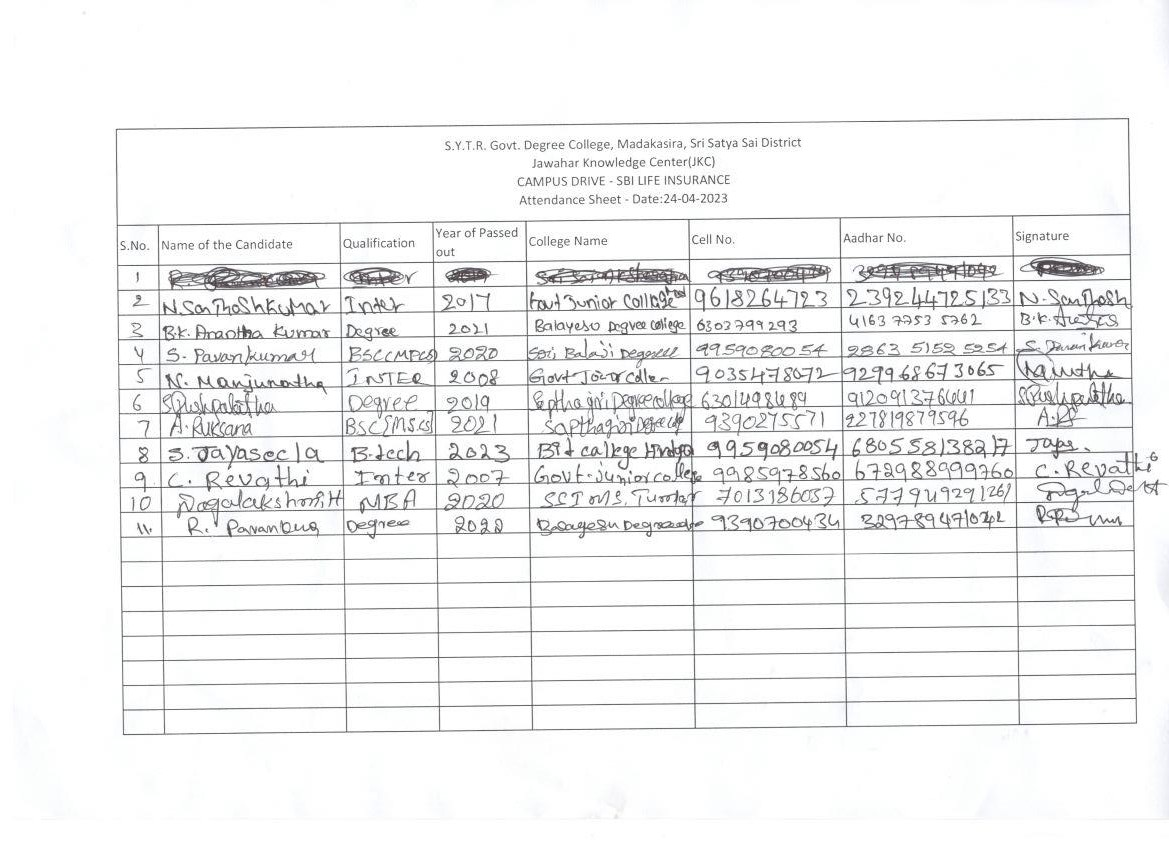 S.Y.T.R. Govt. Degree College, Madakasira, Sri Satya Sai District
Jawahar Knowledge Center(JKC)
CAMPUS DRIVE - SBI LIFE INSURANCE
Attendance Sheet - Date:24-04-2023
S.No. Name of the Candidate Qualification Year of Passed out College Name Cell No. Aadhar No. Signature
1
2 N.Santhoshkumar Inter 2017 Govt Junior College 9618264723 239244725133 N. Santhosh
3 B.K. Anantha Kumar Degree 2021 Balayesu Degree college 6303799293 4163 7753 5762 B.K.
4 S. Pavankumar BSC(MPCS) 2020 Sri Balaji Degree 9959080054 2863 5152 5254
5 N. Manjunatha INTER 2008 Govt 9035478072 929968673065
6 S.Pushpalatha Degree 2019 Sapthagiri Degree college 6301498484 S.Pushpalatha
7 A. Ruksana 2021 Sapthagiri Degree 9390275571 227819879596
8 S. Jayaseela B.tech 2023 Bit callege 9959080054 680558138217 Jaya.
9 C. Revathi Inter 2007 Govt. junior college 9985978560 672988999760 C. Revathi
10 Nagalakshmi.H MBA 2020 7013186037 577949291261
11. R. Degree 9390700434